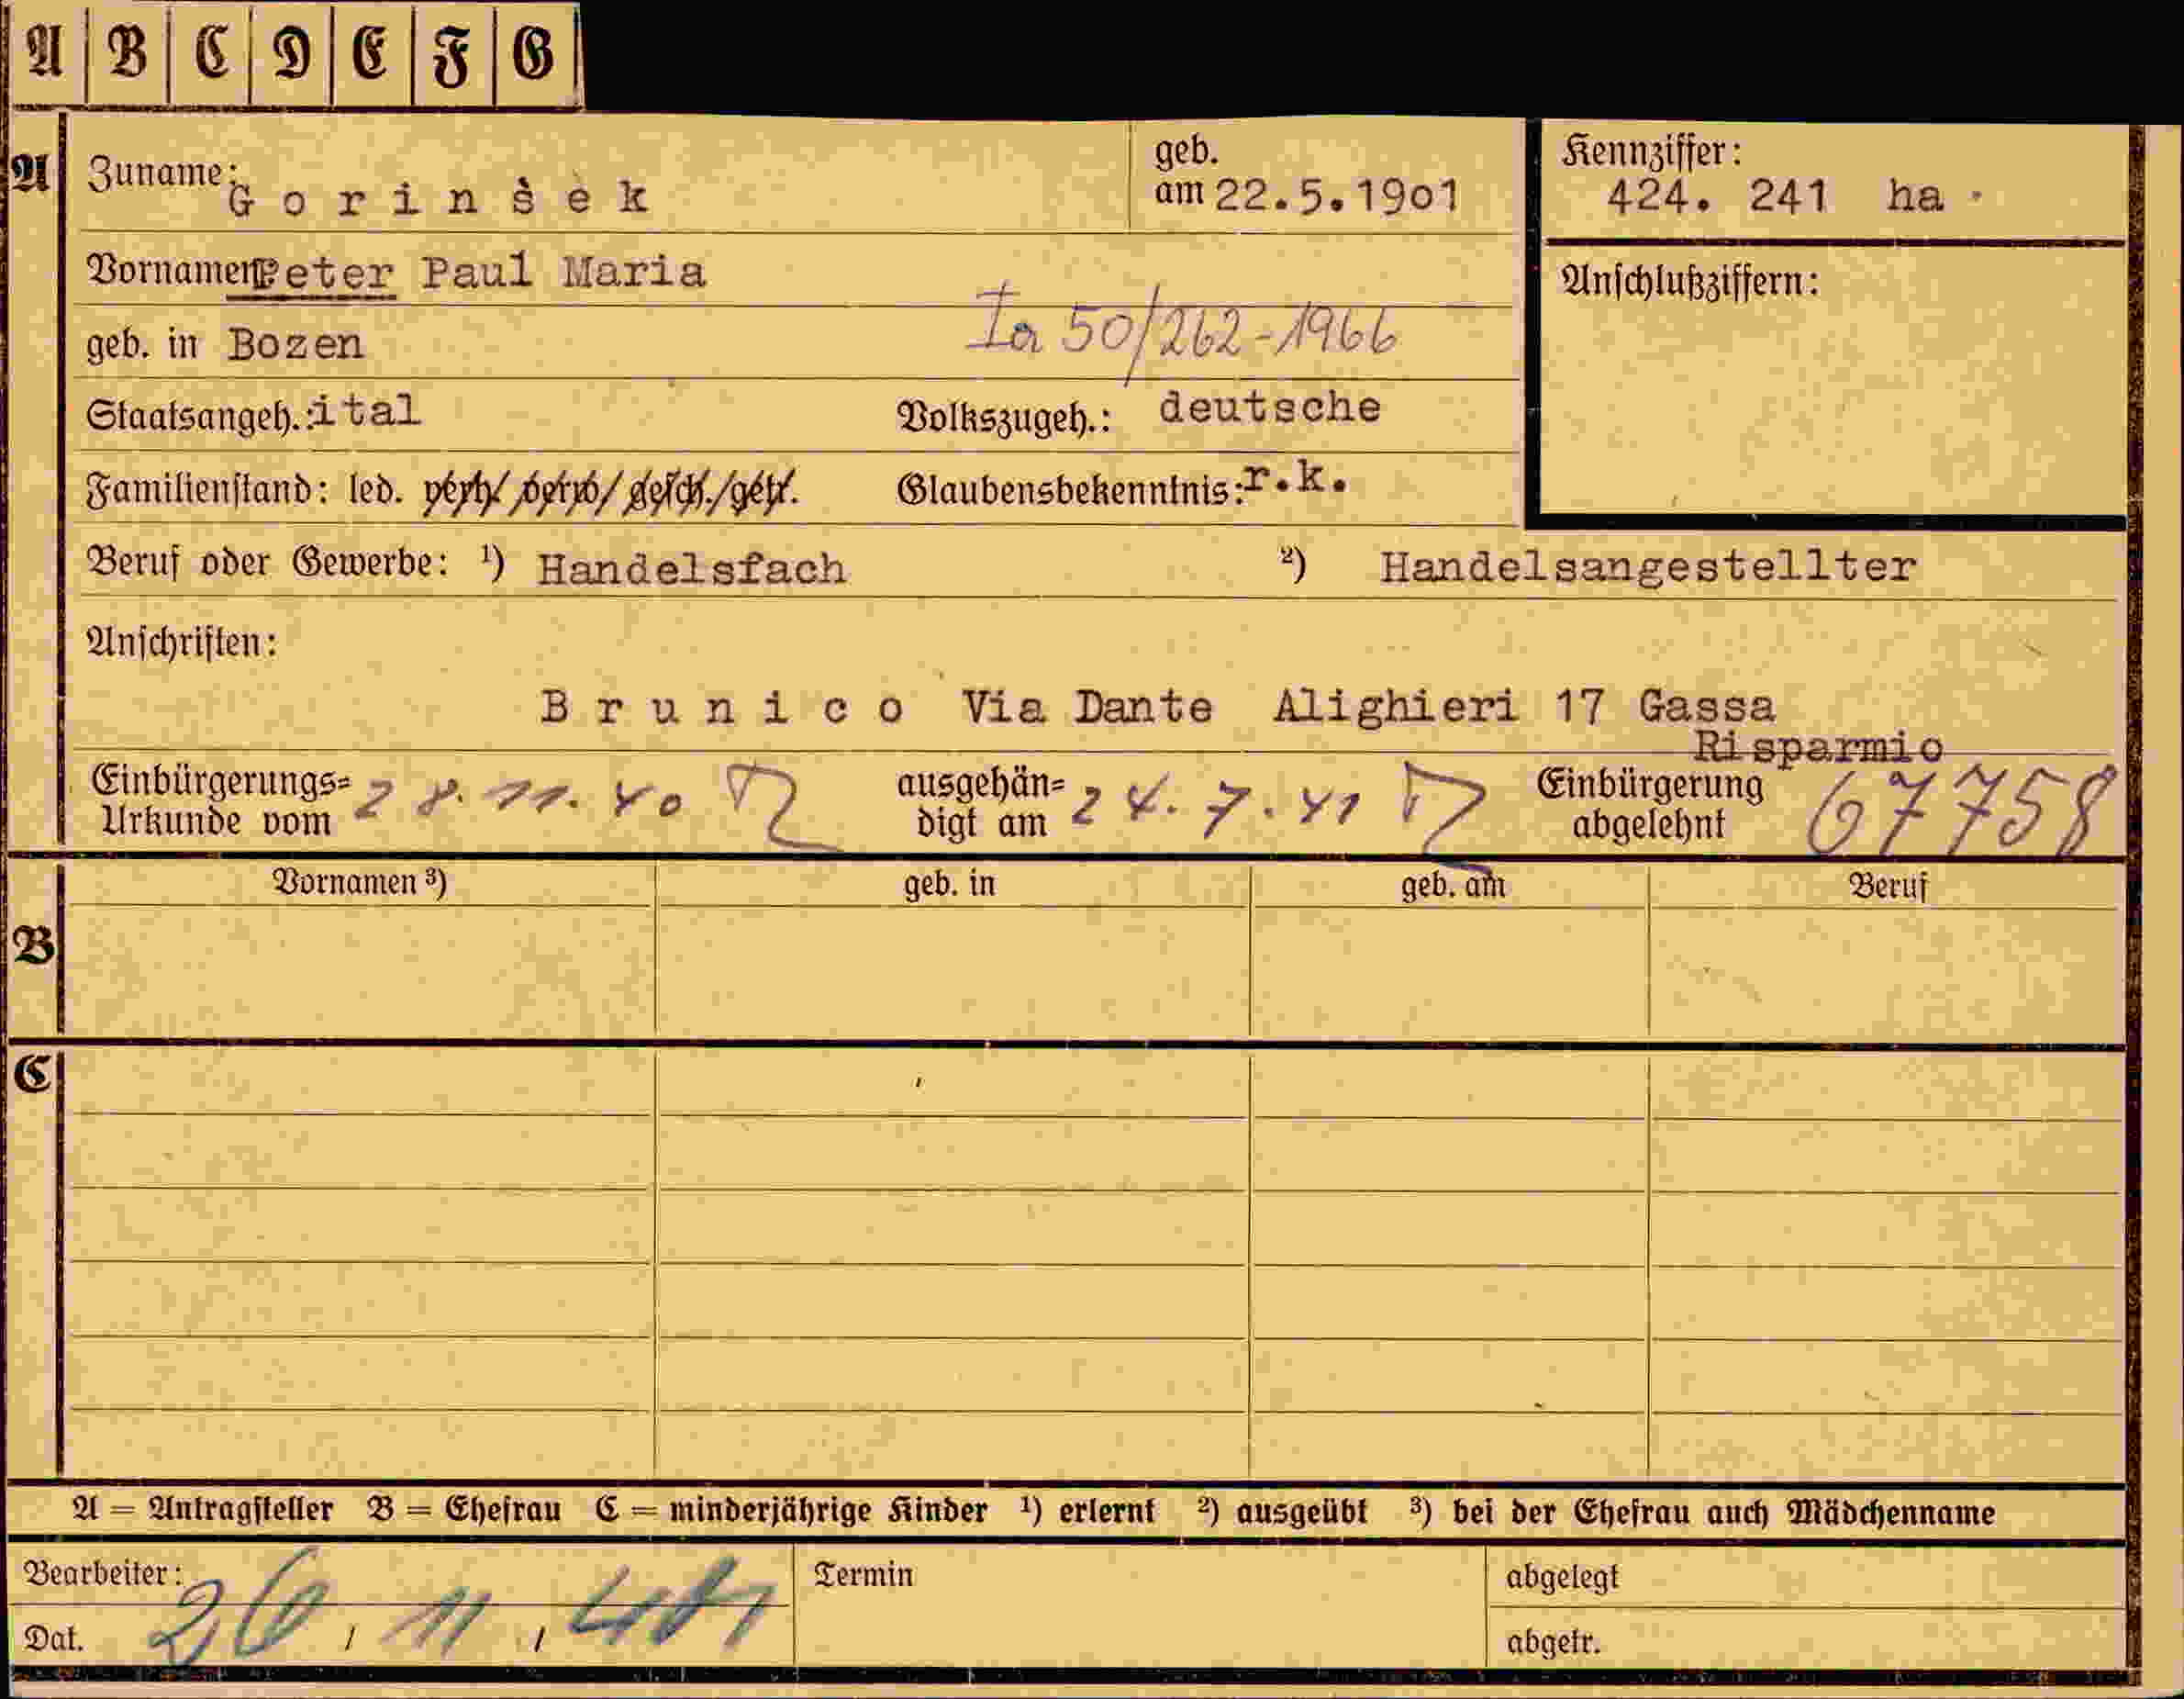 A B C D E F G
A Zuname: Gorinšek geb. am 22.5.1901 Kennziffer: 424. 241 ha
Vornamen: Peter Paul Maria Anschlußziffern:
geb. in Bozen Ia 50/262-1966
Staatsangeh.: ital Volkszugeh.: deutsche
Familienstand: led. verh./verw./gesch./getr. Glaubensbekenntnis: r.k.
Beruf oder Gewerbe: ¹) Handelsfach ²) Handelsangestellter
Anschriften:
Brunico Via Dante Alighieri 17 Gassa
Risparmio
Einbürgerungs=Urkunde vom 28.11.40 ausgehän=digt am 24.7.41 Einbürgerung abgelehnt 67758
B Vornamen ³) geb. in geb. am Beruf
C
A = Antragsteller B = Ehefrau C = minderjährige Kinder ¹) erlernt ²) ausgeübt ³) bei der Ehefrau auch Mädchenname
Bearbeiter: Termin abgelegt
Dat. 26 / 11 / abgetr.